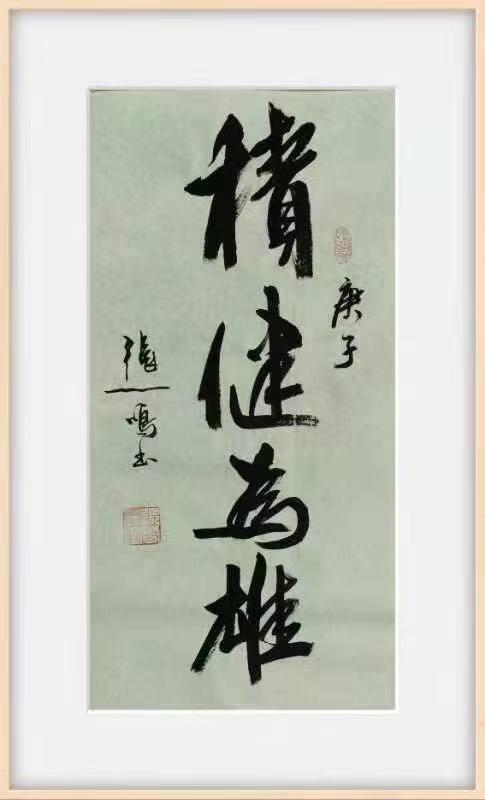 庚子
積健為雄
張一鳴书